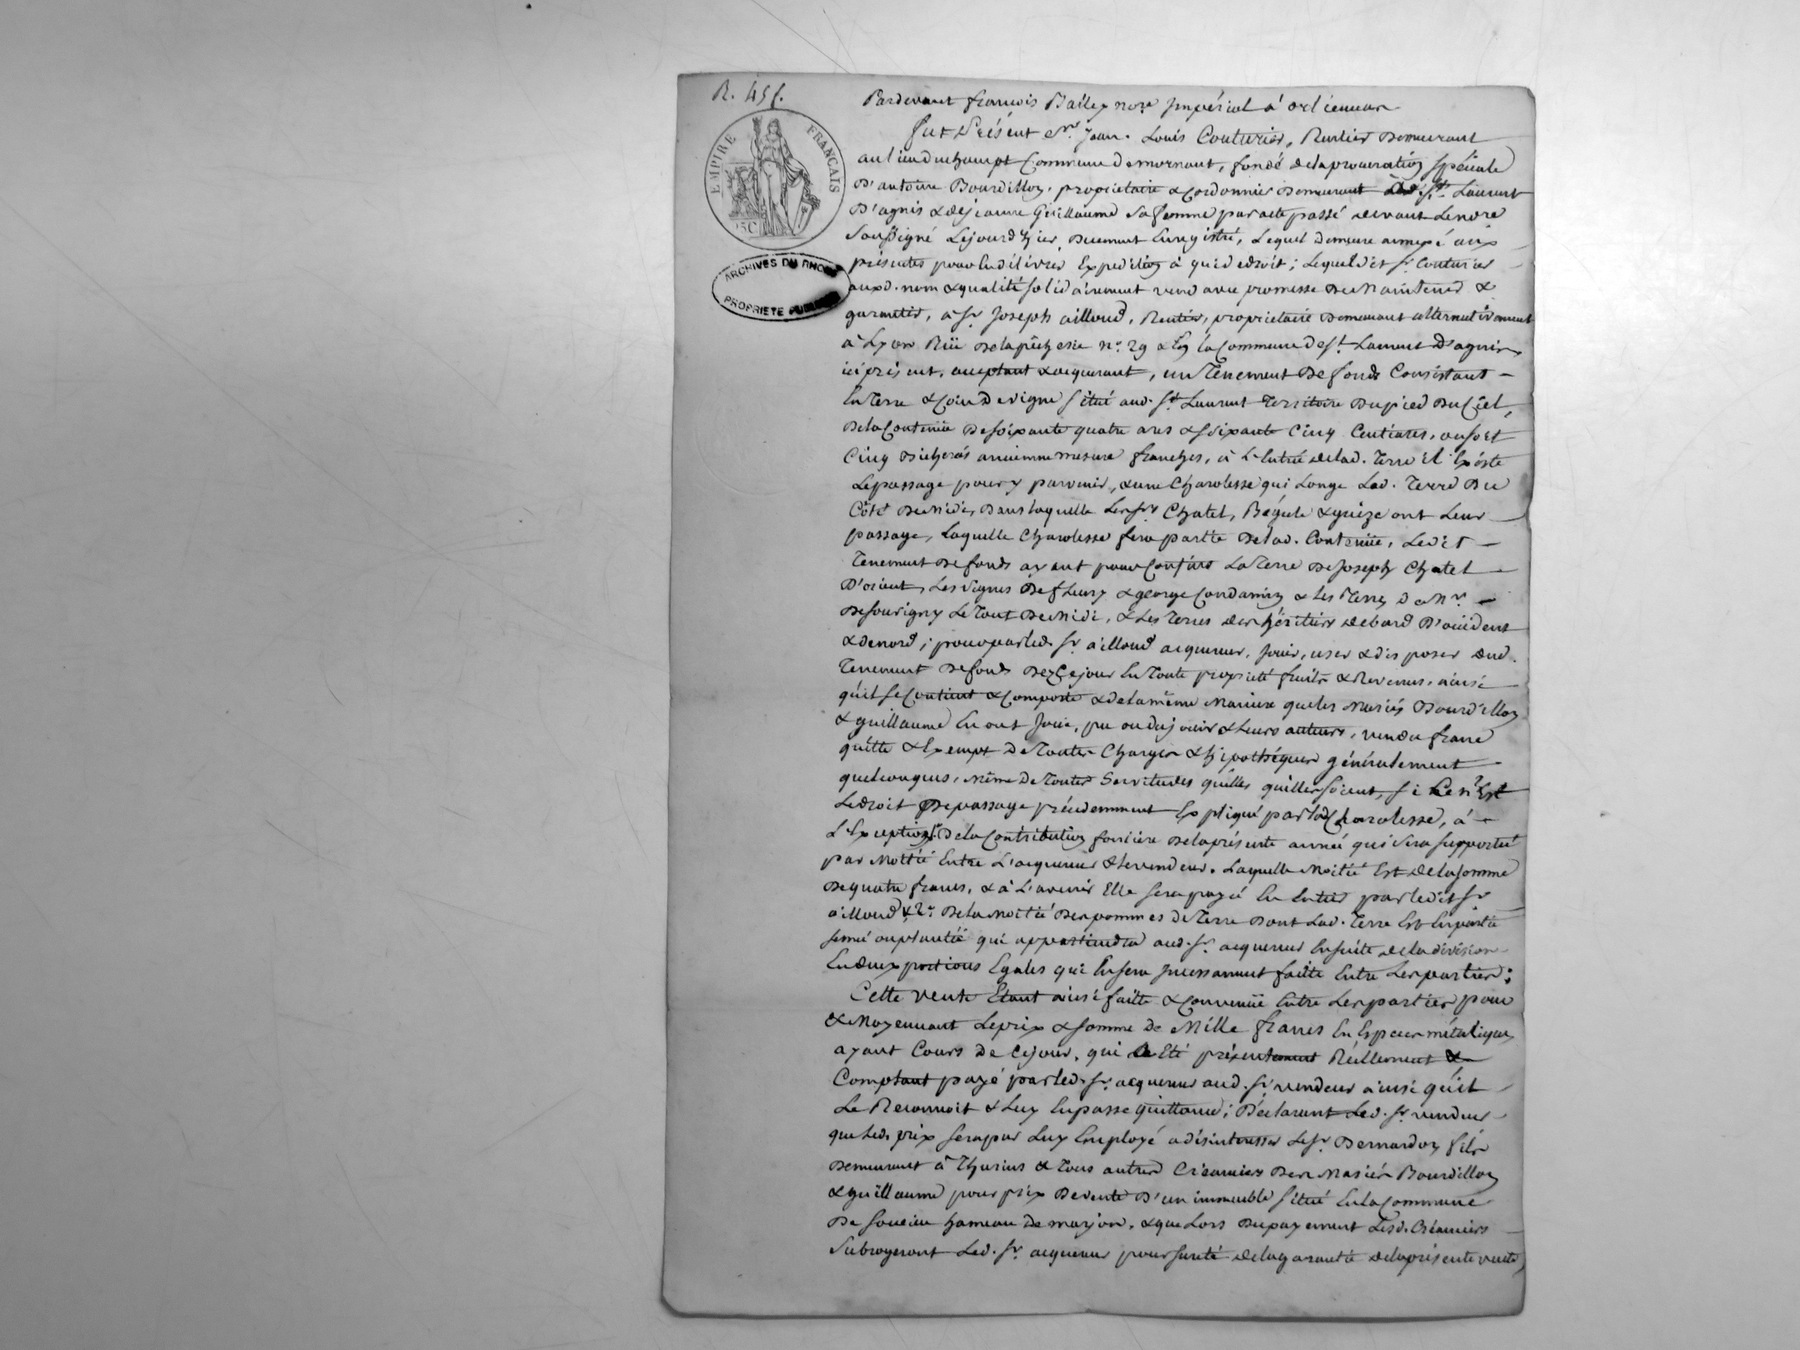 R. 451.
EMPIRE FRANÇAIS
75C
ARCHIVES DU RHONE
PROPRIETE PUBLIQUE
Pardevant françois Bailly nore Impérial à orlienas
fut Présent Mr. Jean Louis Couturier, Rentier Demeurant
au lieu du champt Commune de mornant, fondé de la procuration spéciale
D'antoine Bourdillon, proprietaire & Cordonnier Demeurant à St. Laurent
D'agnis & de jeanne Guillaume sa femme par acte passé devant Le nore
Soussigné Le jour d'hier, Duement Enregistré, Lequel demeure annexé aux
présentes pour En délivrer Expedition à qui de droit; Lequel dit Sr. Couturier
aux d. nom & qualité solidairement vend avec promesse De Maintenir &
garantir, à Sr. Joseph ailloud, Rentier, proprietaire Demeurant alternativement
à Lyon Rüe De la pêcherie n°. 29 & En la Commune de St. Laurent D'agnis,
ici présent, acceptant & acquerant, un Tenement De fonds Consistant
En Terre & Coin De vigne situé aud. St. Laurent Territoire Du pied Du Ciel,
De la Contenüe De soixante quatre ares & soixante Cinq Centiares, ou soit
Cinq Bicherés ancienne mesure franches, à L'entrée de lad. Terre il Existe
Le passage pour y parvenir, & une Charolesse qui Longe Lad. Terre Du
Côté De Midi, Dans laquelle Les Srs Chatel, & ont Leur
passage, Laquelle Charolesse fera partie De lad. Contenüe, Ledit
Tenement De fonds ayant pour Confins La Terre De Joseph Chatel
D'orient, Les vignes De fleury & george Condamin & Les Terres De Mr.
De souvigny Le Tout De Midi, & Les Terres des héritiers debard D'occident
& de nord; pour par led. Sr. aillourd acquereur, Jouir, user & disposer dud.
Tenement De fonds Dez Ce jour En Toute proprieté fruits & Revenus, ainsi
qu'il se Contient & Comporte & de la même Maniere que les Mariés Bourdillon
& guillaume En ont Joui, pu ou du jouir & Leurs auteurs, vendu franc
quitte & Exempt De Toutes Charges & hipothéques généralement
quelconques, Même De Toutes Servitudes quelles quelles soient, si Ce n'Est
Le droit De passage précedemment Expliqué par lad. Charolesse, à
L'Exception De la Contribution fonciere De la présente année qui sera supportée
par Moitié Entre L'acquereur & Le vendeur, Laquelle Moitié Est de la somme
De quatre francs, & à L'avenir Elle sera payée En Entier par ledit Sr.
aillourd & 2°. De la Moitié Des pommes de Terre Dont Lad. Terre Est En partie
semée ou plantée qui appartiendra aud. Sr. acquereur Ensuite de la division
En deux portions Egales qui En sera Incessamment faitte Entre Les parties;
Cette vente Etant ainsi faitte & Convenüe Entre Les parties pour
& Moyennant Le prix & somme de Mille francs En Especes métaliques
ayant Cours de Ce jour, qui a Eté présentement Réellement &
Comptant payé par led. Sr. acquereur aud. Sr. vendeur ainsi qu'il
Le Reconnoit & Luy En passe quittance; Déclarant Led. Sr. vendeur
que Led. prix sera par Luy Employé à désintéresser Le Sr. Bernardon fils
Demeurant à Thurins & Tous autres Créanciers Des Mariés Bourdillon
& guillaume pour prix De vente D'un immeuble situé En la Commune
De soucieu hameau de marjon, & que Lors Du payement Lesd. Créanciers
Subrogeront Led. Sr. acquereur pour sureté de la garantie de la présente vente,